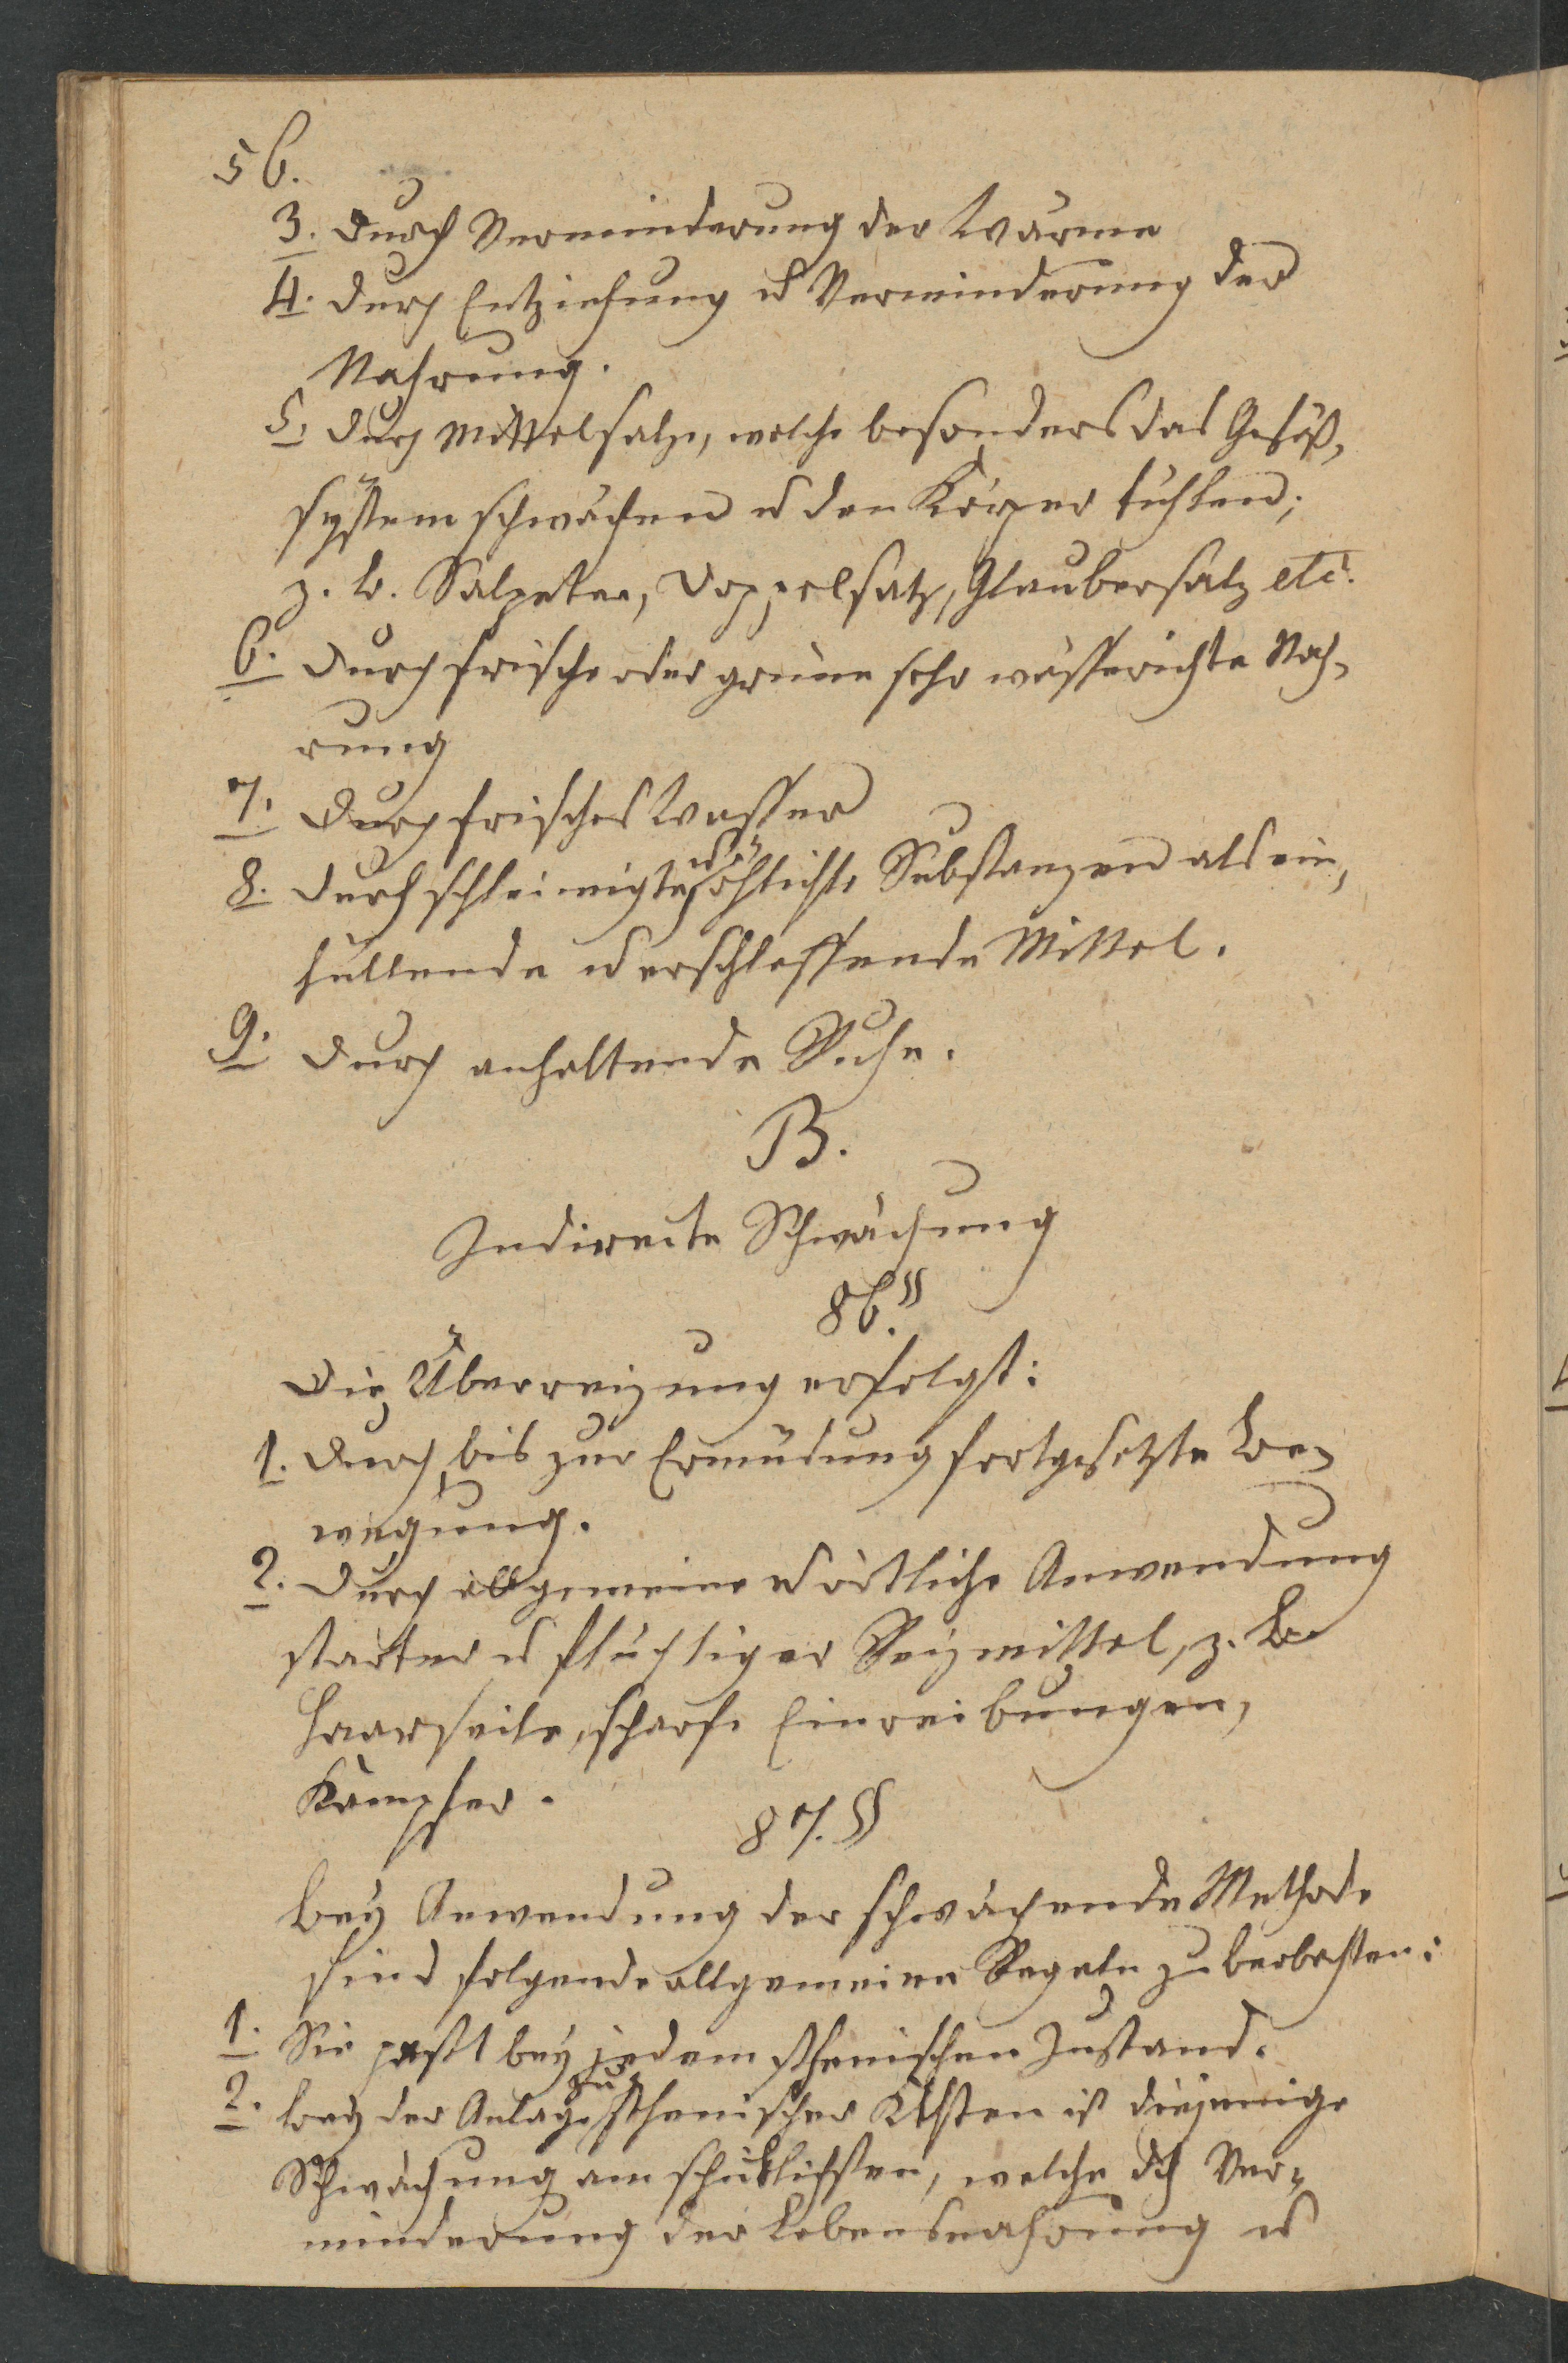 56.
3. Durch Verminderung der Wärme
4. Durch Entziehung u Verminderung der
Nahrung.
5. Durch Mittelsalze, welche besonders das Gefäß¬
system schwächen u den Körper kühlen;
z. B. Salpeter, Doppelsalz, Glaubersalz etc.
6. Durch frische oder grüne sehr wässerichte Nah¬
rung
7. Durch frisches Wasser
8. Durch schleimigte u öhlichte Substanzen als ein¬
hüllende u erschlaffende Mittel.
9. Durch anhaltende Ruhe.
B.
Indirecte Schwächung
86. §
Die Überreizung erfolgt:
1. Durch bis zur Ermüdung fortgesetzte Be¬
wegung.
2. Durch allgemeine u örtliche Anwendung
starker u flüchtiger Reizmittel, z. B.
Haarseile, scharfe Einreibungen,
Kampfer.
87. §
Bey Anwendung der schwächende Methode
sind folgende allgemeine Regeln zu beobachten:
1. Sie paßt bey jedem sthenischen Zustand.
2. Bey der Anlage zu sthenischer ist diejenige
Schwächung am schicklichsten, welche dch Ver¬
minderung der Lebensnahrung u